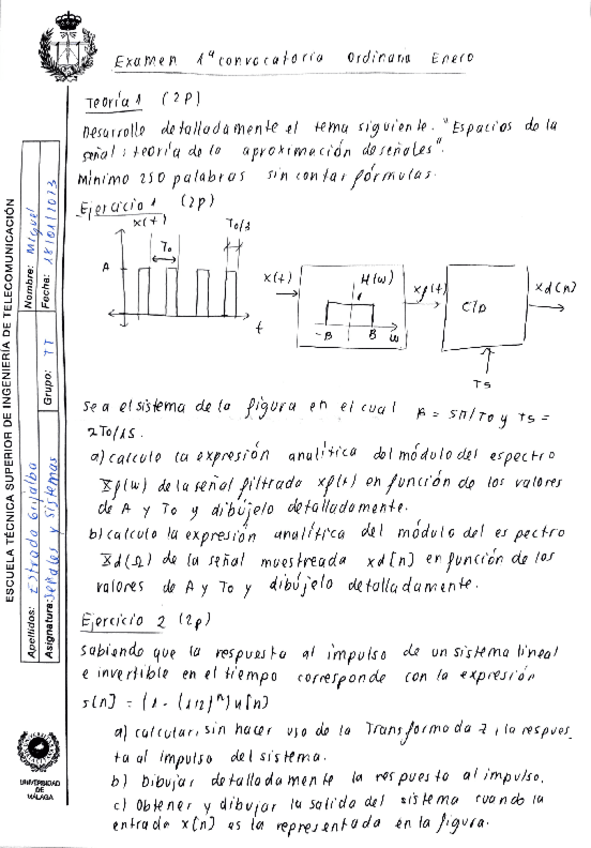 Examen 1ª convocatoria Ordinaria Enero
Teoría 1 (2p)
Desarrolle detalladamente el tema siguiente. "Espacios de la
señal: teoría de la aproximación de señales".
Mínimo 250 palabras sin contar fórmulas.
Ejercicio 1 (2p)
x(t)
T0/3
T0
A
t
x(t)
H(w)
1
-B
B
w
xf(t)
C/D
xd(n)
Ts
Sea el sistema de la figura en el cual B = 5π/T0 y Ts =
2T0/15.
a) calcule la expresión analítica del módulo del espectro
Xf(w) de la señal filtrada xf(t) en función de los valores
de A y T0 y dibújelo detalladamente.
b) calcule la expresión analítica del módulo del espectro
Xd(Ω) de la señal muestreada xd[n] en función de los
valores de A y T0 y dibújelo detalladamente.
Ejercicio 2 (2p)
sabiendo que la respuesta al impulso de un sistema lineal
e invertible en el tiempo corresponde con la expresión
s[n] = (1 - (1/2)^n) u[n]
a) calcular, sin hacer uso de la Transformada Z, la respues_
ta al impulso del sistema.
b) Dibujar detalladamente la respuesta al impulso.
c) Obtener y dibujar la salida del sistema cuando la
entrada x[n] es la representada en la figura.
ESCUELA TÉCNICA SUPERIOR DE INGENIERÍA DE TELECOMUNICACIÓN
Apellidos: Estrada Grijalba
Nombre: Miguel
Asignatura: Señales y Sistemas
Grupo: TT
Fecha: 18/01/2023
UNIVERSIDAD
DE
MÁLAGA